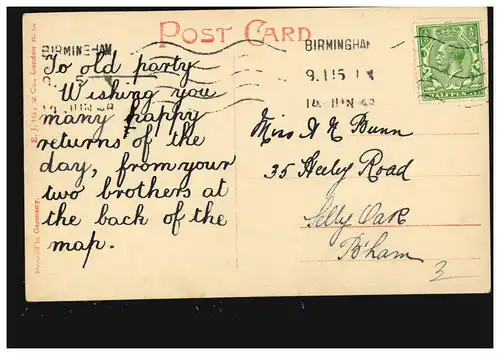 POST CARD
BIRMINGHAM
BIRMINGHAM
9.15
To old party
Wishing you
many happy
returns of the
day, from your
two brothers at
the back of the
map.
Miss A N Bunn
35 Heeley Road
Selly Oak
B'ham
3
Printed in Germany.
London